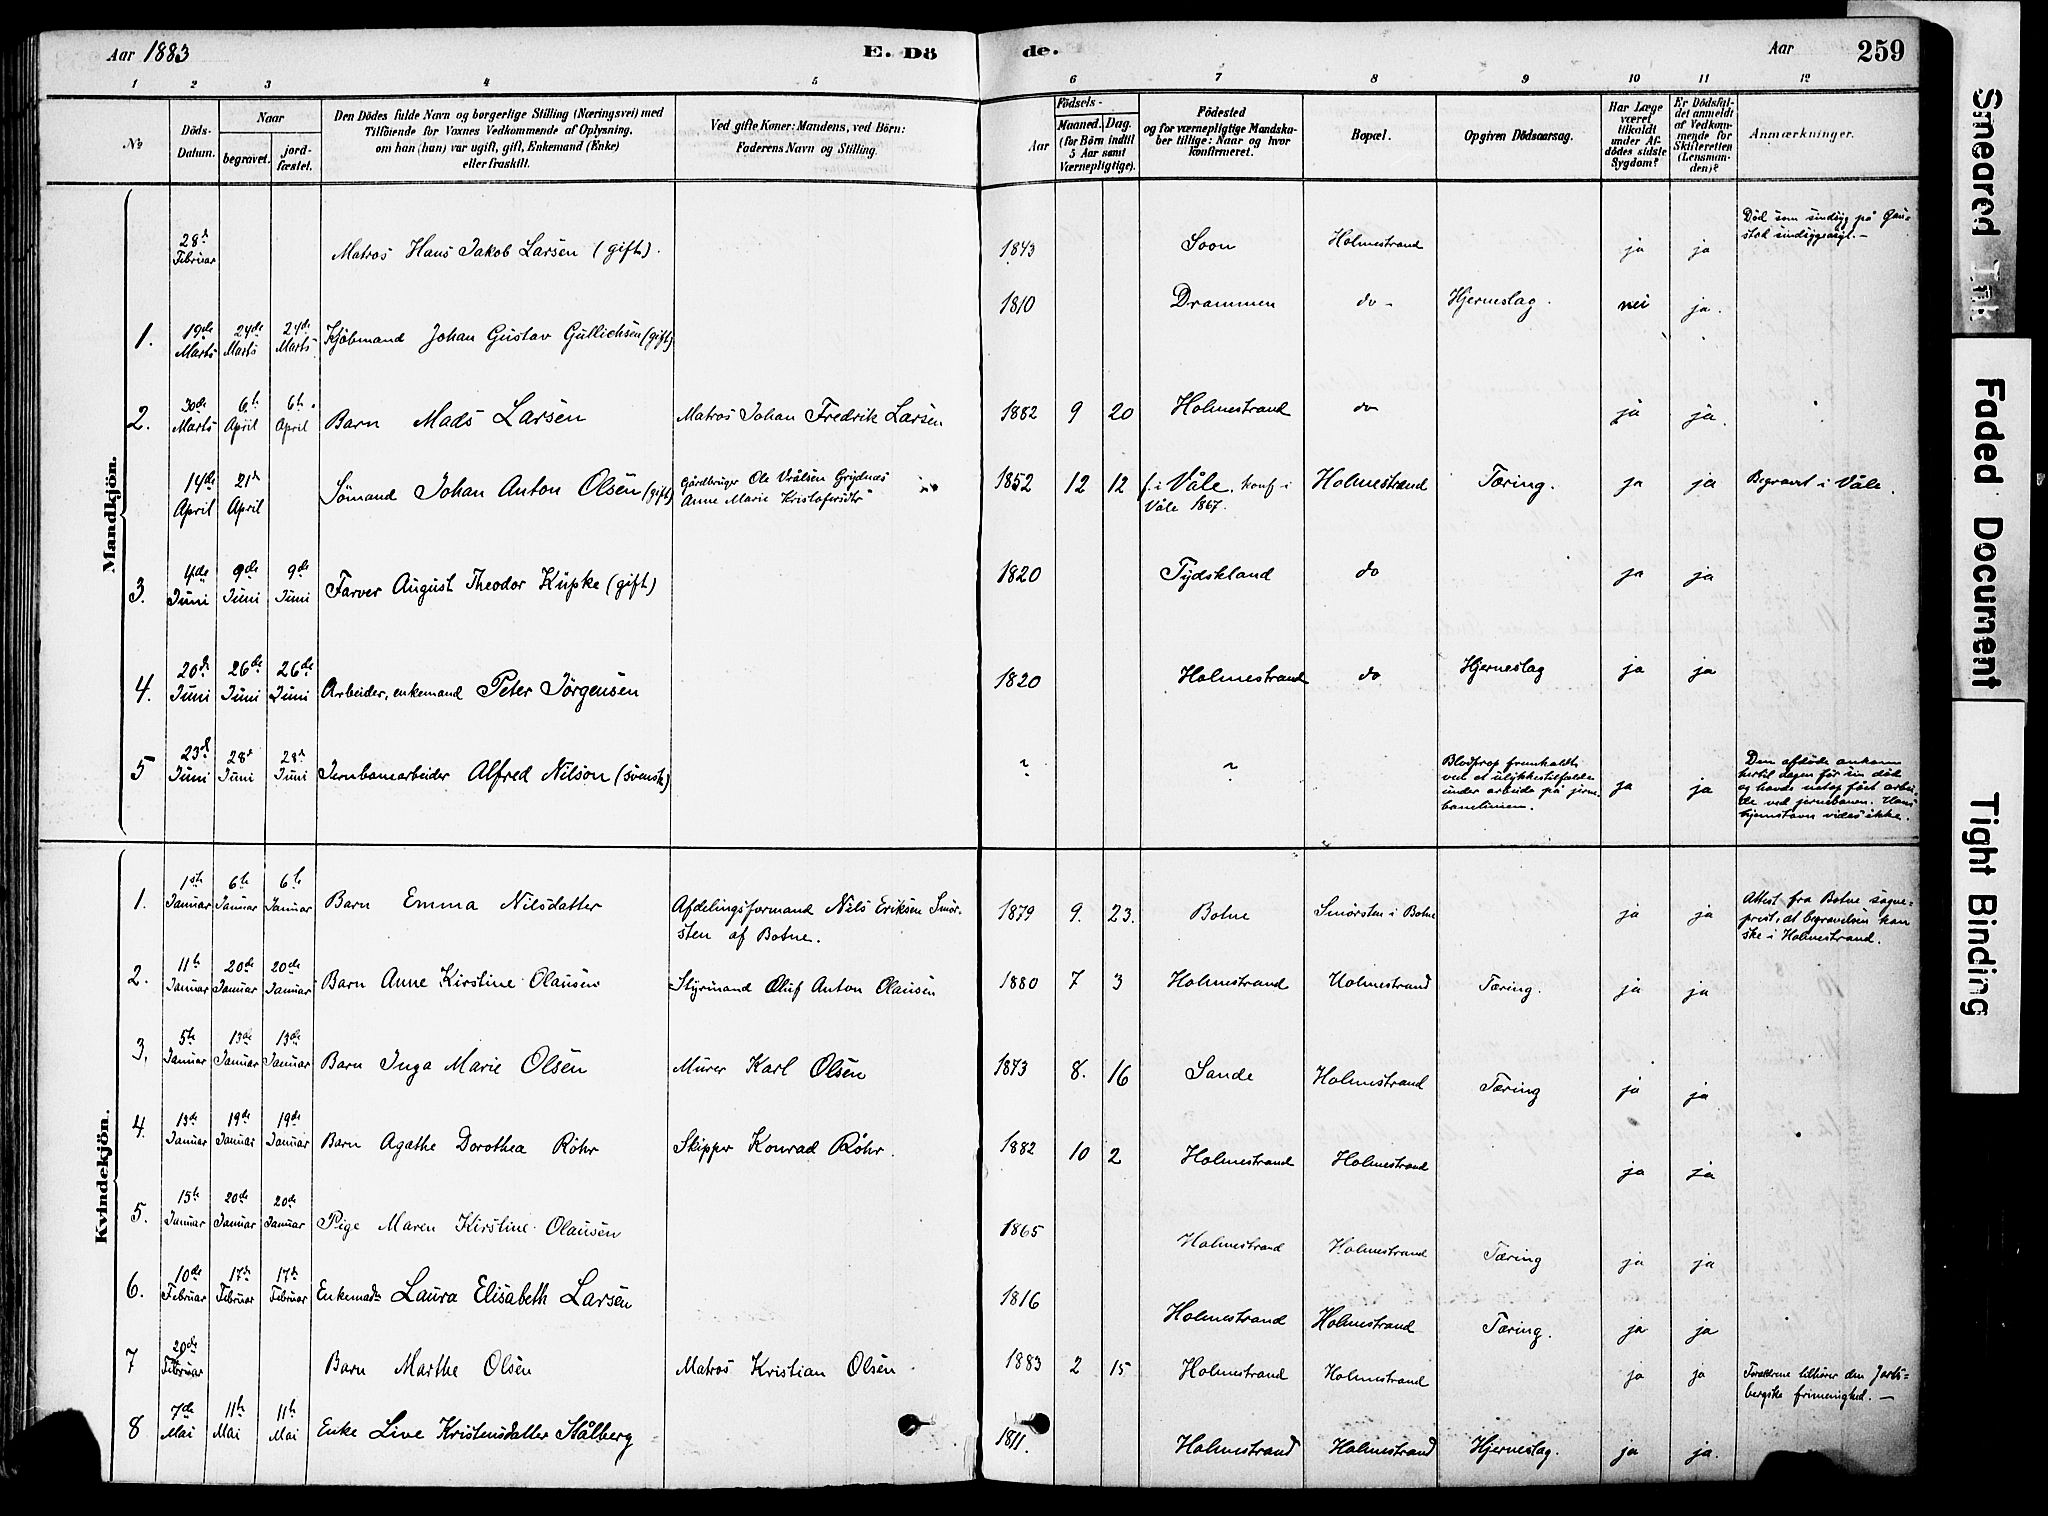 Aar 1883
E. Dö
de.
Aar
259
1 2 3 4 5 6 7 8 9 10 11 12
No
Döds-Datum.
Naar
begravet.
jordfæstet.
Den Dödes fulde Navn og borgerlige Stilling (Næringsvei) med
Tilföiende for Voxnes Vedkommende af Oplysning,
om han (hun) var ugift, gift, Enkemand (Enke)
eller fraskilt.
Ved gifte Koner: Mandens, ved Börn:
Faderens Navn og Stilling.
Födsels-
Aar
Maaned. Dag.
(for Börn indtil
5 Aar samt
Værnepligtige).
Födested
og for værnepligtige Mandskaber tillige: Naar og hvor
konfirmeret.
Bopæl.
Opgiven Dödsaarsag.
Har Læge
været
tilkaldt
under Afdödes sidste
Sygdom?
Er Dödsfaldet anmeldt
af Vedkommende for
Skifteretten
(Lensmanden)?
Anmærkninger.
Mandkjön.
28de Februar Matros Hans Jakob Larsen (gift). 1843 Soon Holmestrand ja ja Död som sindsyg på Gaustad sindsygeasyl. —
1. 19de Marts 24de Marts 24de Marts Kjöbmand Johan Gustav Gullichsen (gift) 1810 Drammen do — Hjerneslag. nei ja.
2. 30de Marts 6te April 6te April Barn Mads Larsen Matros Johan Fredrik Larsen 1882 9 20 Holmestrand do ja ja.
14de April 21de April Sömand Johan Anton Olsen (gift) Gårdbruger Ole Vrålsen Grydnæs Anne Marie Kristofersdtr 1852 12 12 f. i Våle. konf i Våle 1867. Holmestrand Tæring. ja ja Begravet i Våle.
3. 4de Juni 9de Juni 9de Juni Farver August Theodor Kupke (gift) 1820 Tydskland do ja ja
4. 20de Juni 26de Juni 26de Juni Arbeider, enkemand Peter Jörgensen 1820 Holmestrand do Hjerneslag ja ja
5 23de Juni 28de Juni 28de Juni Jernbanearbeider Alfred Nilson (svensk) ? ? Blodstrop fremkaldt ved et ulykkestilfælde under arbeide på jernbanelinien. ja ja Den afdöde ankom hertil dagen för sin död og havde netop fået arbeide ved jernbanen. Hans hjemstavn vides ikke.
Kvindekjön.
1. 1ste Januar 6te Januar 6te Januar Barn Emma Nilsdatter Afdelingsformand Nils Eriksen Smörsten af Botne. 1879 9. 23. Botne Smörsten i Botne ja ja Attest fra Botne sogneprest, at begravelsen kan ske i Holmestrand.
2. 11te Januar 20de Januar 20de Januar Barn Anne Kirstine Olausen Styrmand Oluf Anton Olausen 1880 7 3 Holmestrand Holmestrand Tæring. ja ja
3. 5te Januar 13de Januar 13de Januar Barn Inga Marie Olsen Murer Karl Olsen 1873 8. 16 Sande Holmestrand Tæring ja ja
4. 13de Januar 19de Januar 19de Januar Barn Agathe Dorothea Röhr Skipper Konrad Röhr. 1882 10 2 Holmestrand Holmestrand ja ja
5. 15te Januar 20de Januar 20de Januar Pige Maren Kirstine Olausen 1865 Holmestrand Holmestrand Tæring ja ja
6. 10de Februar 17de Februar 17de Februar Enkemade Laura Elisabeth Larsen 1816 Holmestrand Holmestrand Tæring. ja ja
7 20de Februar Barn Marthe Olsen Matros Kristian Olsen 1883 2 15 Holmestrand Holmestrand ja ja Forældrene tilhörer den Jarlsbergske frimenighed. —
8 7de Mai 11te Mai 11te Mai Enke Live Kristensdatter Stålberg 1811. Holmestrand Holmestrand Hjerneslag. ja ja.
Smeared Ink
Faded Document
Tight Binding